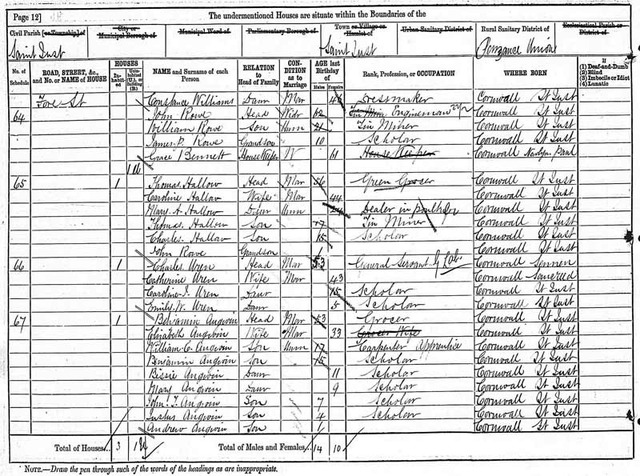 Page 12] The undermentioned Houses are situate within the Boundaries of the
Civil Parish [or Township] of City or Municipal Borough of Municipal Ward of Parliamentary Borough of Town or Village or Hamlet of Urban Sanitary District of Rural Sanitary District of Ecclesiastical Parish or District of
Saint Just Saint Just Penzance Union
No. of Schedule ROAD, STREET, &c., and No. or NAME of HOUSE HOUSES Inhabited Uninhabited (U.), or Building (B.) NAME and Surname of each Person RELATION to Head of Family CONDITION as to Marriage AGE last Birthday of Males Females Rank, Profession, or OCCUPATION WHERE BORN If (1) Deaf-and-Dumb (2) Blind (3) Imbecile or Idiot (4) Lunatic
Fore St Constance Williams Daur Mar Dressmaker Cornwall St Just
64 John Rowe Head Widr 62 Tin Mine Engineman Cornwall St Just
William Rowe Son Unm 21 Tin Miner Cornwall St Just
James P. Rowe Grandson 10 Scholar Cornwall St Just
Grace Bennett House Keeper W 61 House Keeper Cornwall Newlyn Paul
65 1 Thomas Hallow Head Mar Green Grocer Cornwall St Just
Caroline Hallow Wife Mar 44 Cornwall St Just
Mary A. Hallow Daur Unm Dealer in Cornwall St Just
Thomas Hallow Son 17 Tin Miner Cornwall St Just
Charles Hallow Son 15 Scholar Cornwall St Just
John Rowe Grandson Cornwall St Just
66 1 Charles Wren Head Mar 53 General Servant Cornwall Sennen
Catherine Wren Wife Mar 43 Cornwall
Caroline J. Wren Daur 15 Scholar Cornwall St Just
Emily W. Wren Daur Scholar Cornwall St Just
67 1 Benjamin Angwin Head Mar 53 Grocer Cornwall St Just
Elizabeth Angwin Wife Mar 33 Grocer Wife Cornwall St Just
William C. Angwin Son Unm 17 Carpenter Apprentice Cornwall St Just
Benjamin Angwin Son 15 Scholar Cornwall St Just
Bessie Angwin Daur 11 Scholar Cornwall St Just
Mary Angwin Daur 9 Scholar Cornwall St Just
John T. Angwin Son 7 Scholar Cornwall St Just
Justus Angwin Son 4 Scholar Cornwall St Just
Andrew Angwin Son 1 Cornwall St Just
Total of Houses 3 Total of Males and Females 14 10
NOTE.—Draw the pen through such of the words of the headings as are inappropriate.